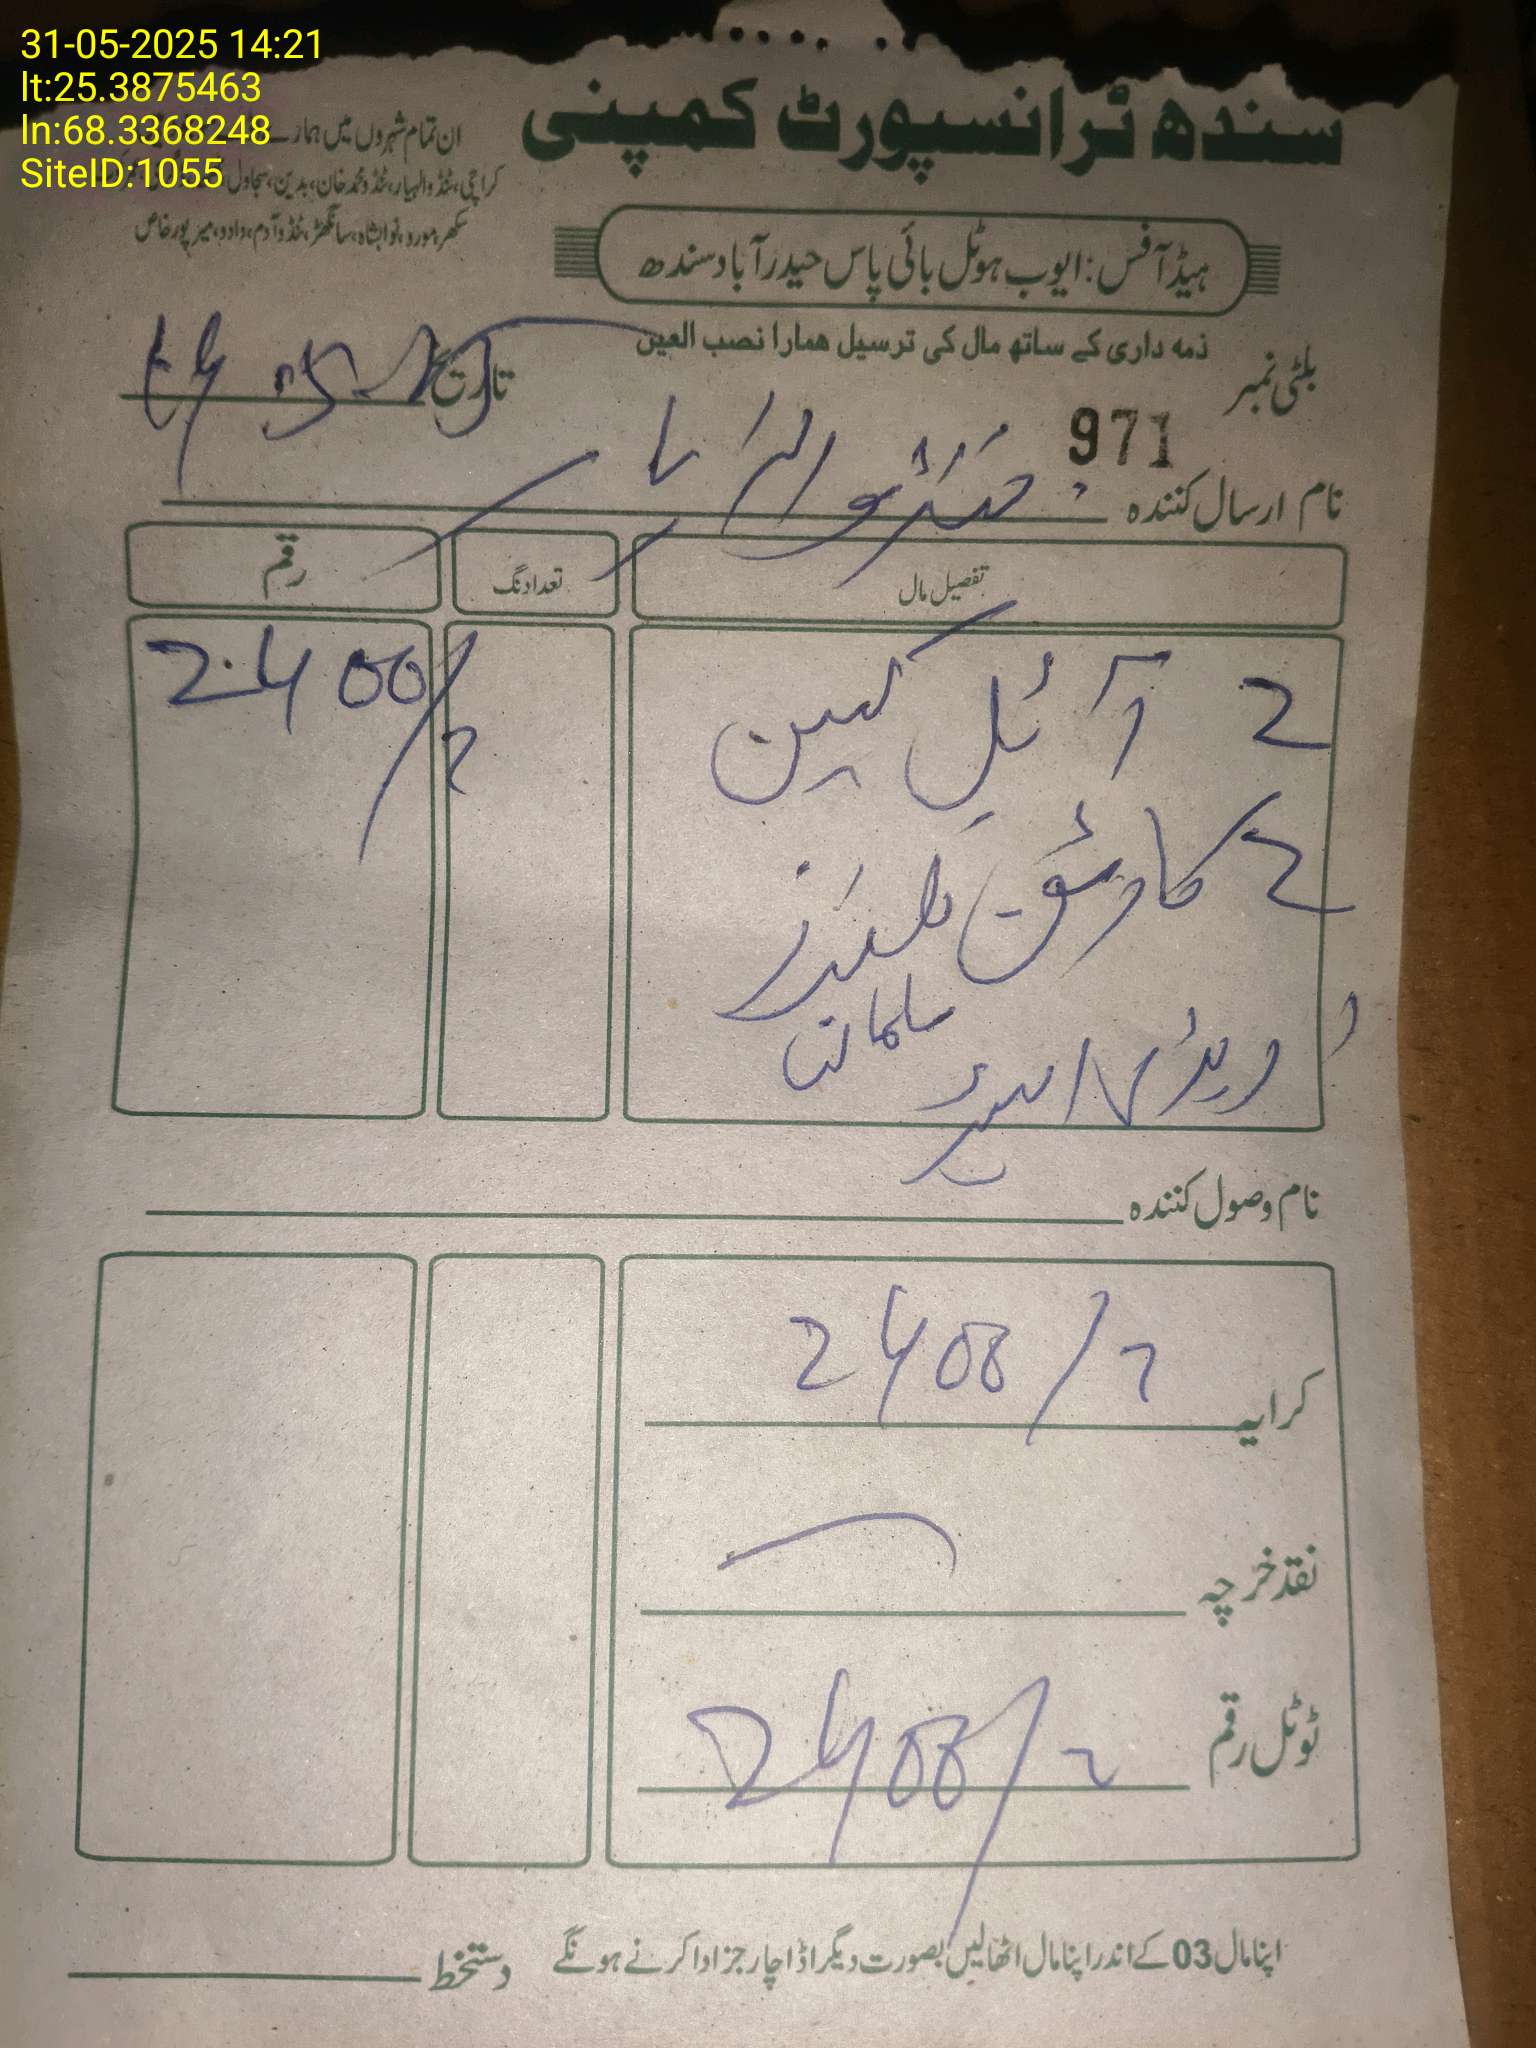 31-05-2025 14:21
lt:25.3875463
ln:68.3368248
SiteID:1055
سندھ ٹرانسپورٹ کمپنی
ان تمام شہروں میں ہمارے
کراچی، ٹنڈوالہیار، ٹنڈومحمدخان، بدین، سجاول
سکھر، مورو، نوابشاہ، سانگھڑ، ٹنڈوآدم، دادو، میرپورخاص
ہیڈ آفس: ایوب ہوٹل بائی پاس حیدرآباد سندھ
ذمہ داری کے ساتھ مال کی ترسیل ھمارا نصب العین
بلٹی نمبر
971
تاریخ
نام ارسال کنندہ
تفصیل مال
تعداد نگ
رقم
2 آئل کین
2400/
2
سلمان
نام وصول کنندہ
کرایہ 2400/
نقد خرچہ
ٹوٹل رقم 2400/
اپنا مال 03 کے اندر اپنا مال اٹھالیں بصورت دیگر اڈا چارجز ادا کرنے ہونگے
دستخط